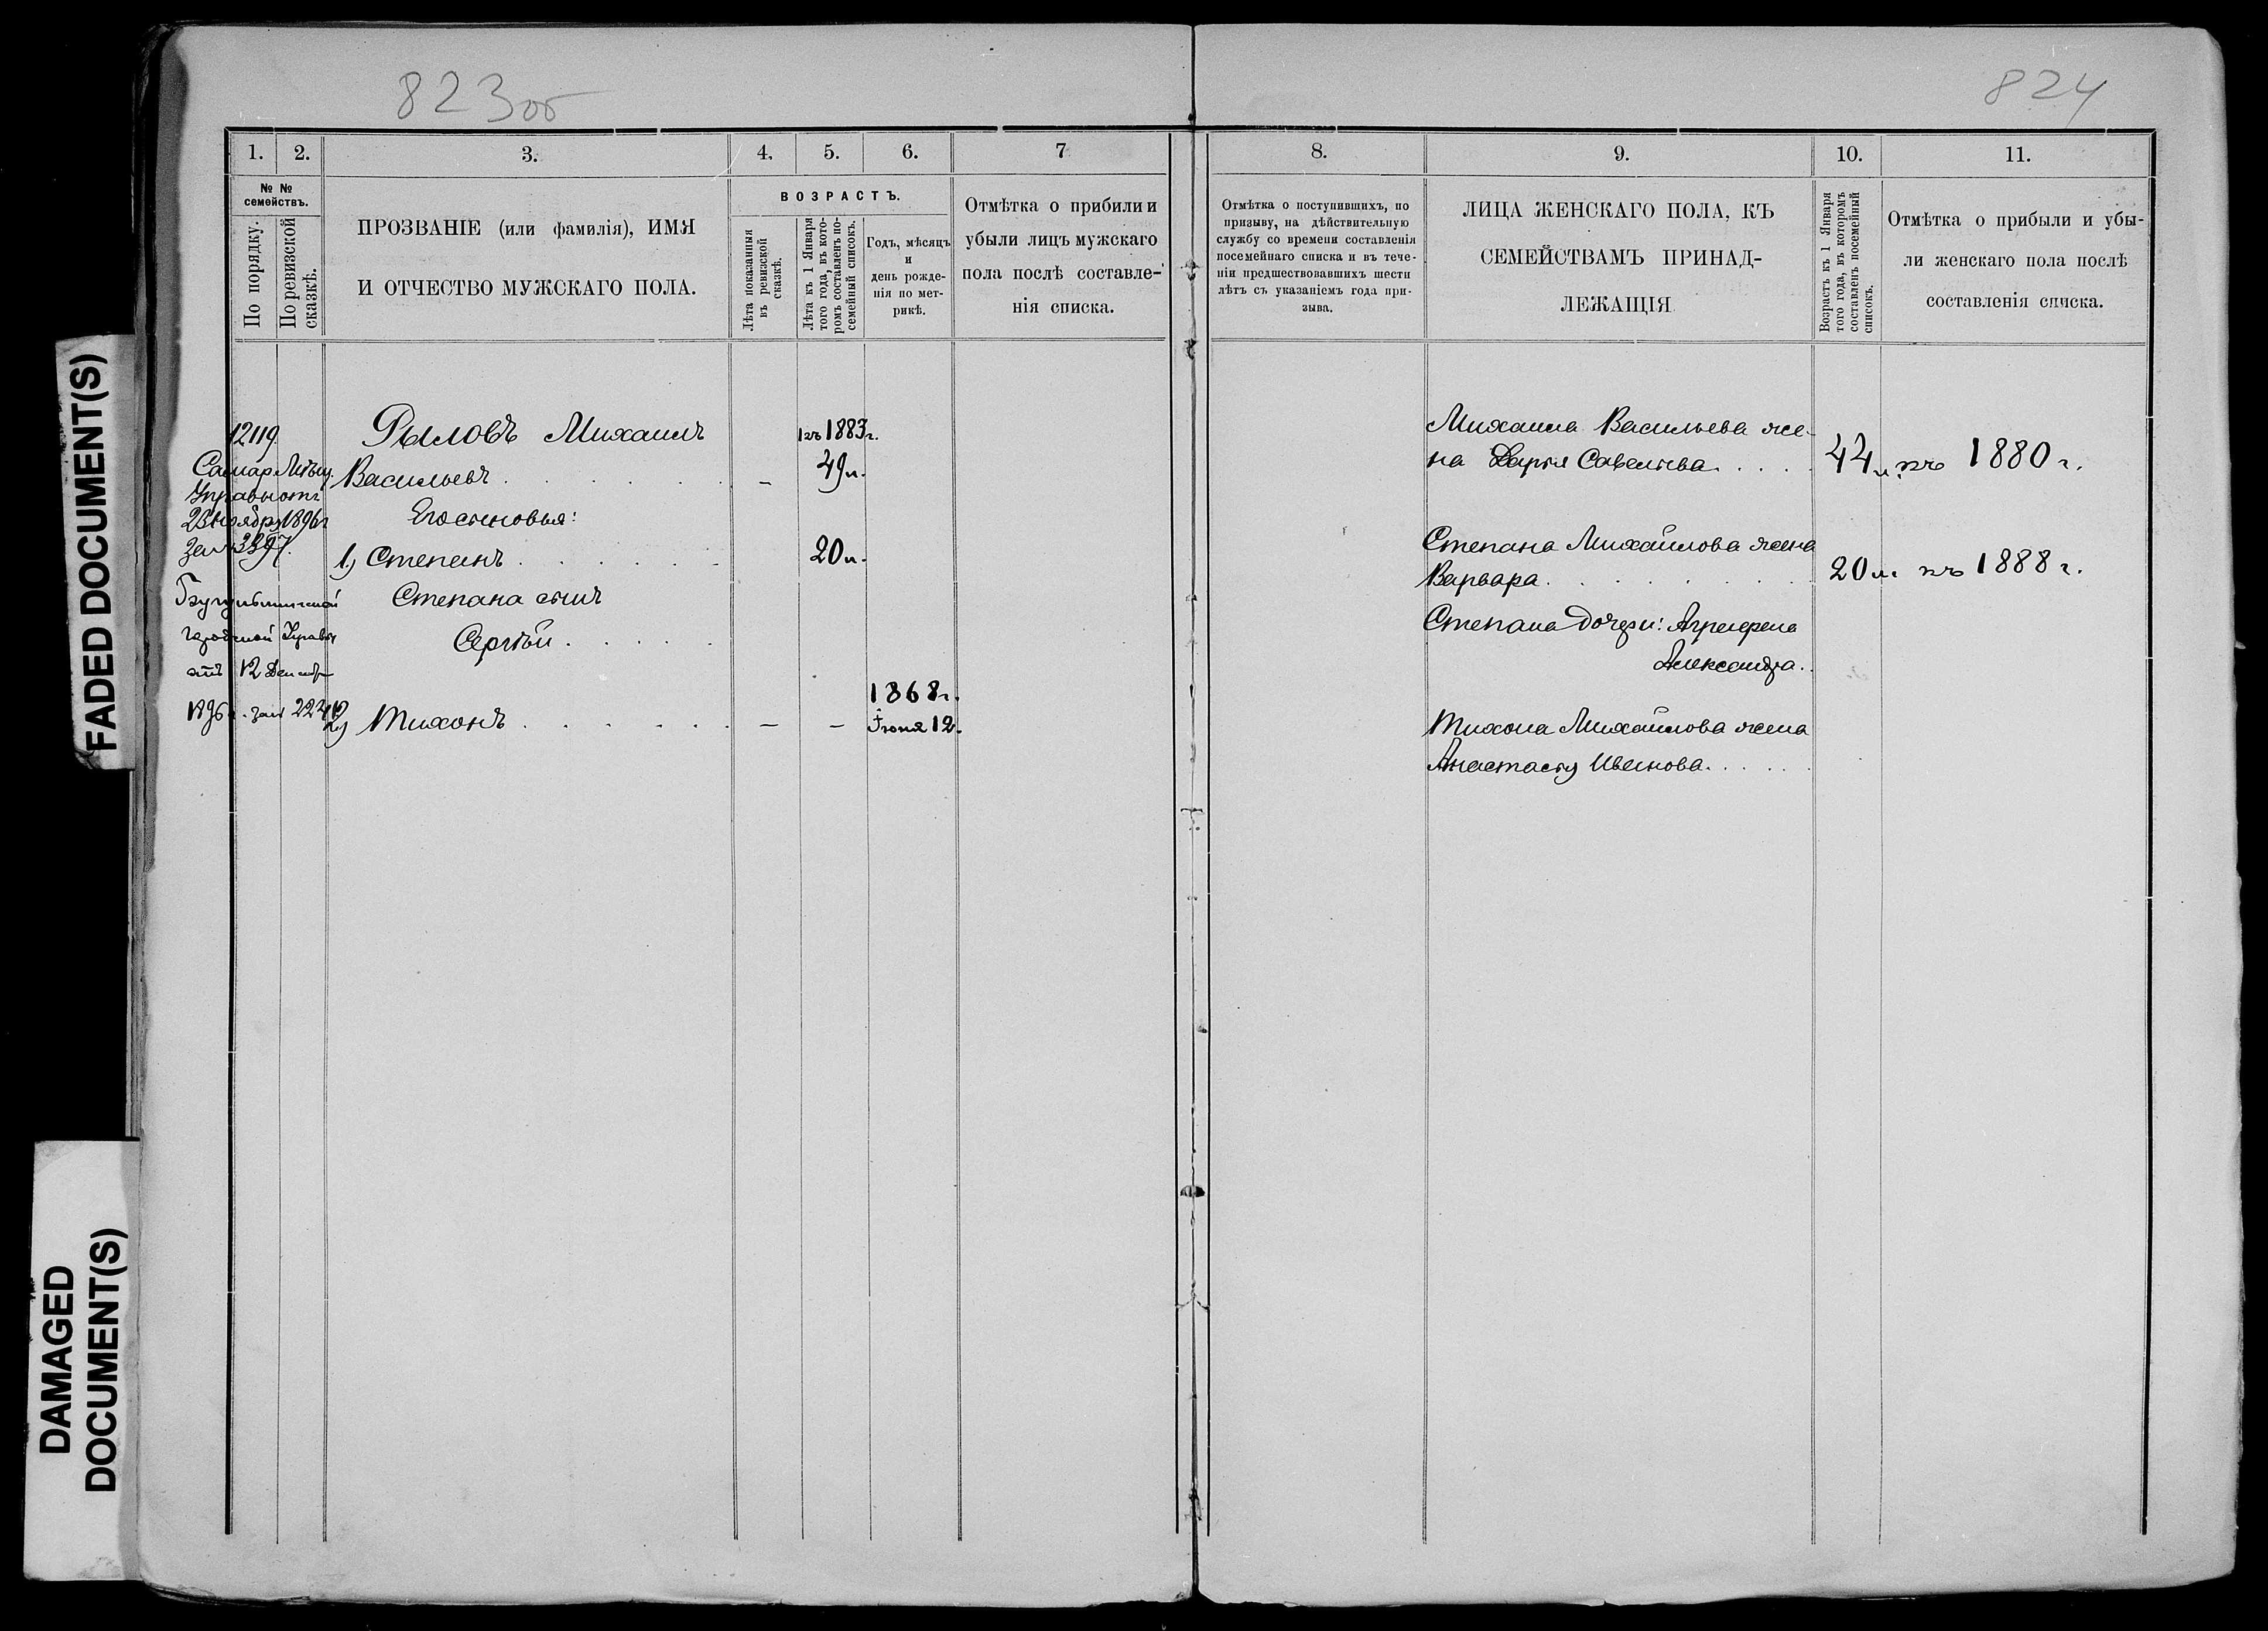 823об
824
1.
2.
3.
4.
5.
6.
7
№ №
семействъ.
По порядку.
По ревизской
сказкѣ.
ПРОЗВАНІЕ (или фамилія), ИМЯ
И ОТЧЕСТВО МУЖСКАГО ПОЛА.
ВОЗРАСТЪ.
Лѣта показанныя
въ ревизской
сказкѣ.
Лѣта къ 1 Января
того года, въ кото-
ромъ составленъ по-
семейный списокъ.
Годъ, мѣсяцъ
и
день рожде-
нія по мет-
рикѣ.
Отмѣтка о прибили и
убыли лицъ мужскаго
пола послѣ составле-
нія списка.
12119.
Самар. Мѣщ.
Управы отъ
23 Ноября 1896 г
за № 3397.
Бугульминской
городской Управы
отъ 12 Декабр
1896 г. за № 2242
Рыловъ Михаилъ
Васильевъ . . . . . . –
къ 1883 г.
49 л.
Его сыновья:
1) Степанъ . . . . . .
20 л.
Степана сынъ
Сергѣй . . . . .
2) Тихонъ . . . . . . – –
1868 г.
Іюня 12.
8.
9.
10.
11.
Отмѣтка о поступившихъ, по
призыву, на дѣйствительную
службу со времени составленія
посемейнаго списка и въ тече-
ніи предшествовавшихъ шести
лѣтъ съ указаніемъ года при-
зыва.
ЛИЦА ЖЕНСКАГО ПОЛА, КЪ
СЕМЕЙСТВАМЪ ПРИНАД-
ЛЕЖАЩІЯ
Возрастъ къ 1 Января
того года, въ которомъ
составленъ посемейный
списокъ.
Отмѣтка о прибыли и убы-
ли женскаго пола послѣ
составленія списка.
Михаила Васильева же-
на Дарья Савельева . . . . 44 л. къ 1880 г.
Степана Михайлова жена
Варвара . . . . . . . 20 л. къ 1888 г.
Степана дочери: Агрефена
Александра . .
Тихона Михайлова жена
Анастасія Иванова . . . . .
FADED DOCUMENT(S)
DAMAGED
DOCUMENT(S)